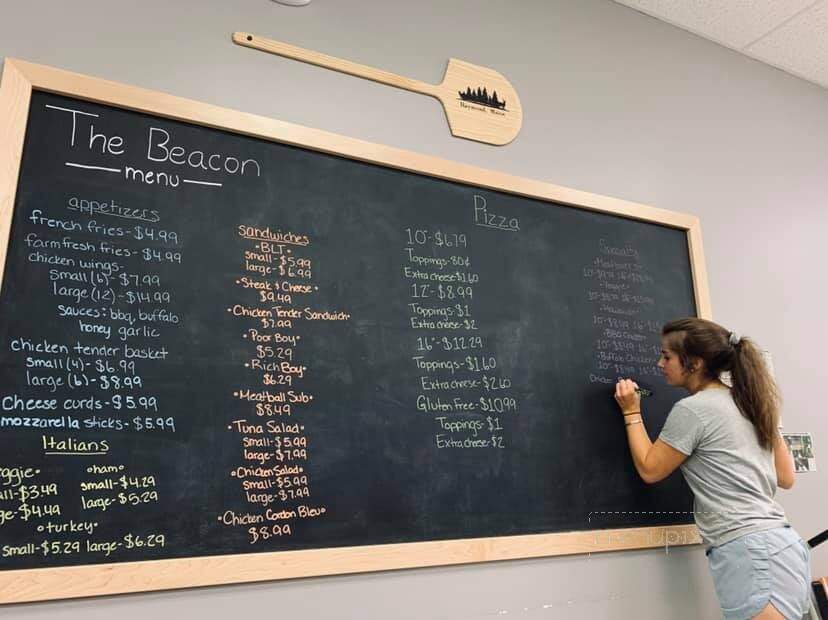 Raymond, Maine
The Beacon
menu
appetizers
french fries - $4.99
farm fresh fries - $4.99
chicken wings -
small (6) - $7.99
large (12) - $14.99
sauces: bbq, buffalo
honey garlic
chicken tender basket
small (4) - $6.99
large (6) - $8.99
Cheese curds - $5.99
mozzarella sticks - $5.99
Italians
ham
small - $4.29
large - $5.29
turkey
small - $5.29 large - $6.29
Sandwiches
BLT
small - $5.99
large - $6.99
Steak & Cheese
$9.49
Chicken Tender Sandwich
$7.99
Poor Boy
$5.29
Rich Boy
$6.29
Meatball Sub
$8.49
Tuna Salad
small - $5.99
large - $7.99
Chicken Salad
small - $5.99
large - $7.99
Chicken Cordon Bleu
$8.99
Pizza
10" - $6.79
Toppings - 80¢
Extra cheese $1.60
12" - $8.99
Toppings - $1
Extra cheese - $2
16" - $12.29
Toppings - $1.60
Extra cheese - $2.60
Gluten Free - $10.99
Toppings - $1
Extra cheese - $2
Specialty
Buffalo Chicken